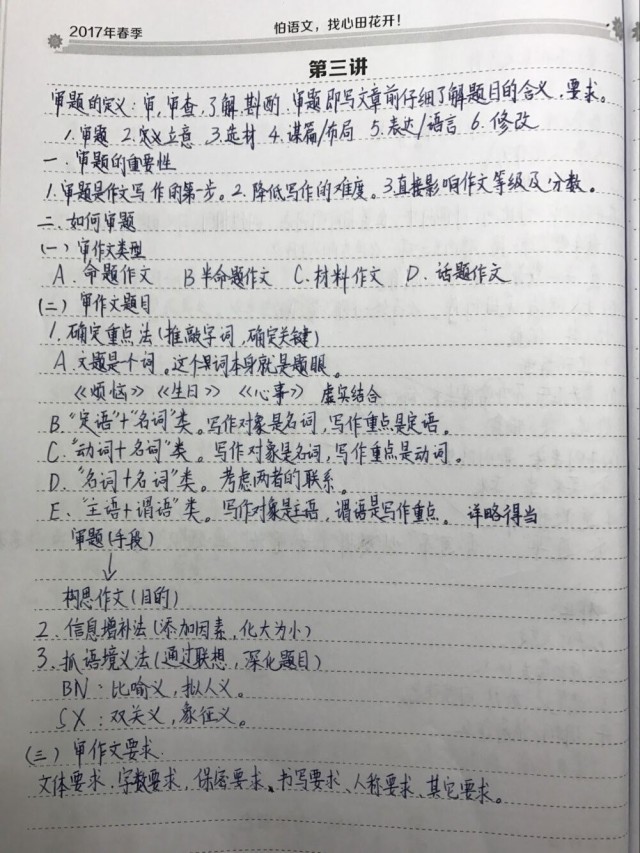 2017年春季
怕语文，找心田花开！
第三讲
审题的定义：审，审查，了解 斟酌．审题即写文章前仔细了解题目的含义．要求。
1.审题 2.定义立意 3.选材 4.谋篇/布局 5.表达/语言 6.修改
一．审题的重要性
1.审题是作文写作的第一步。2.降低写作的难度。3.直接影响作文等级及分数。
二．如何审题
(一) 审作文类型
A．命题作文 B半命题作文 C.材料作文 D．话题作文
(二) 审作文题目
1.确定重点法(推敲字词，确定关键)
A．文题是个词。这个词本身就是题眼。
《烦恼》《生日》《心事》 虚实结合
B."定语"+"名词"类。写作对象是名词，写作重点是定语。
C."动词+名词"类。写作对象是名词，写作重点是动词。
D."名词+名词"类。考虑两者的联系。
E."主语+谓语"类。写作对象是主语，谓语是写作重点。 详略得当
审题(手段)
↓
构思作文(目的)
2.信息增补法(添加因素，化大为小)
3.抓语境义法(通过联想，深化题目)
BN：比喻义，拟人义。
SX：双关义，象征义。
(三) 审作文要求
文体要求．字数要求，保密要求、书写要求、人称要求、其它要求。